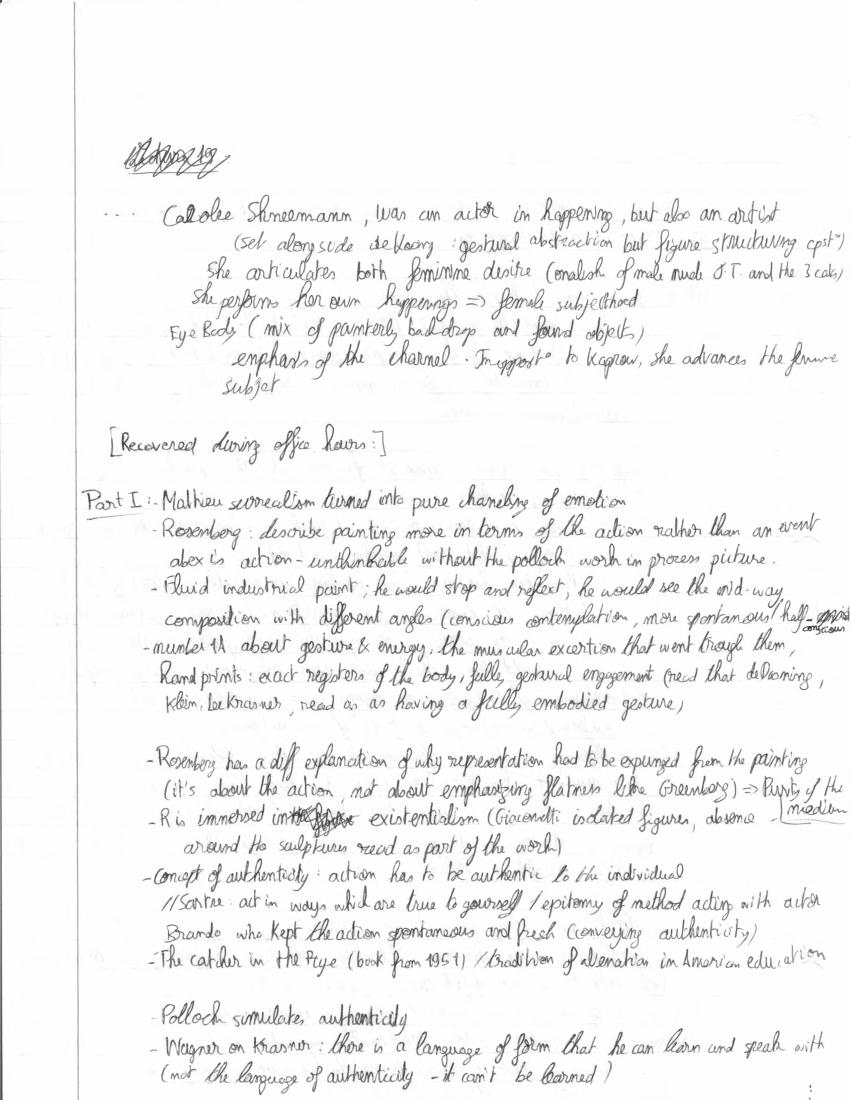 .... Carolee Shneemann, was an actor in happening, but also an artist
(set alongside deKoony : gestural abstraction but figure structuring cpst°)
She articulates both feminine desire ( of male nude J.T. and the 3 cats)
She performs her own happenings => female subjecthood
Eye Body (mix of painterly backdrop and found objects)
emphasis of the charnel. In opposit° to Kaprow, she advances the femme
subject
[Recovered during office hours:]
Part I :- Mathieu surrealism turned into pure chaneling of emotion
- Rosenberg : describe painting more in terms of the action rather than an event
abex is action - unthinkable without the polloch work in process picture.
- Fluid industrial paint ; he would stop and reflect, he would see the mid-way
composition with different angles (conscious contemplation, more spontanous/half-conscious
- number 1A about gesture & energy, the muscular excertion that went trough them,
Hand prints : exact registers of the body, fully gestural engagement (read that deKooning,
Klein, Lee Krasner, read as as having a fully embodied gesture)
- Rosenberg has a diff explanation of why representation had to be expunged from the painting
(it's about the action, not about emphasizing flatness like Greenberg) => Purity of the
medium
- R is immersed in existentialism (Giacometti isolated figures, absence
around the sculptures read as part of the work)
- Concept of authenticity : action has to be authentic to the individual
//Sartre : act in ways which are true to yourself / epitomy of method acting with actor
Brando who kept the action spontaneous and fresh (conveying authenticity)
- The catcher in the Rye (book from 1951) / tradition of alienation in American education
- Polloch simulates authenticity
- Wagner on Krasner : there is a language of form that he can learn and speak with
(not the language of authenticity - it can't be learned)